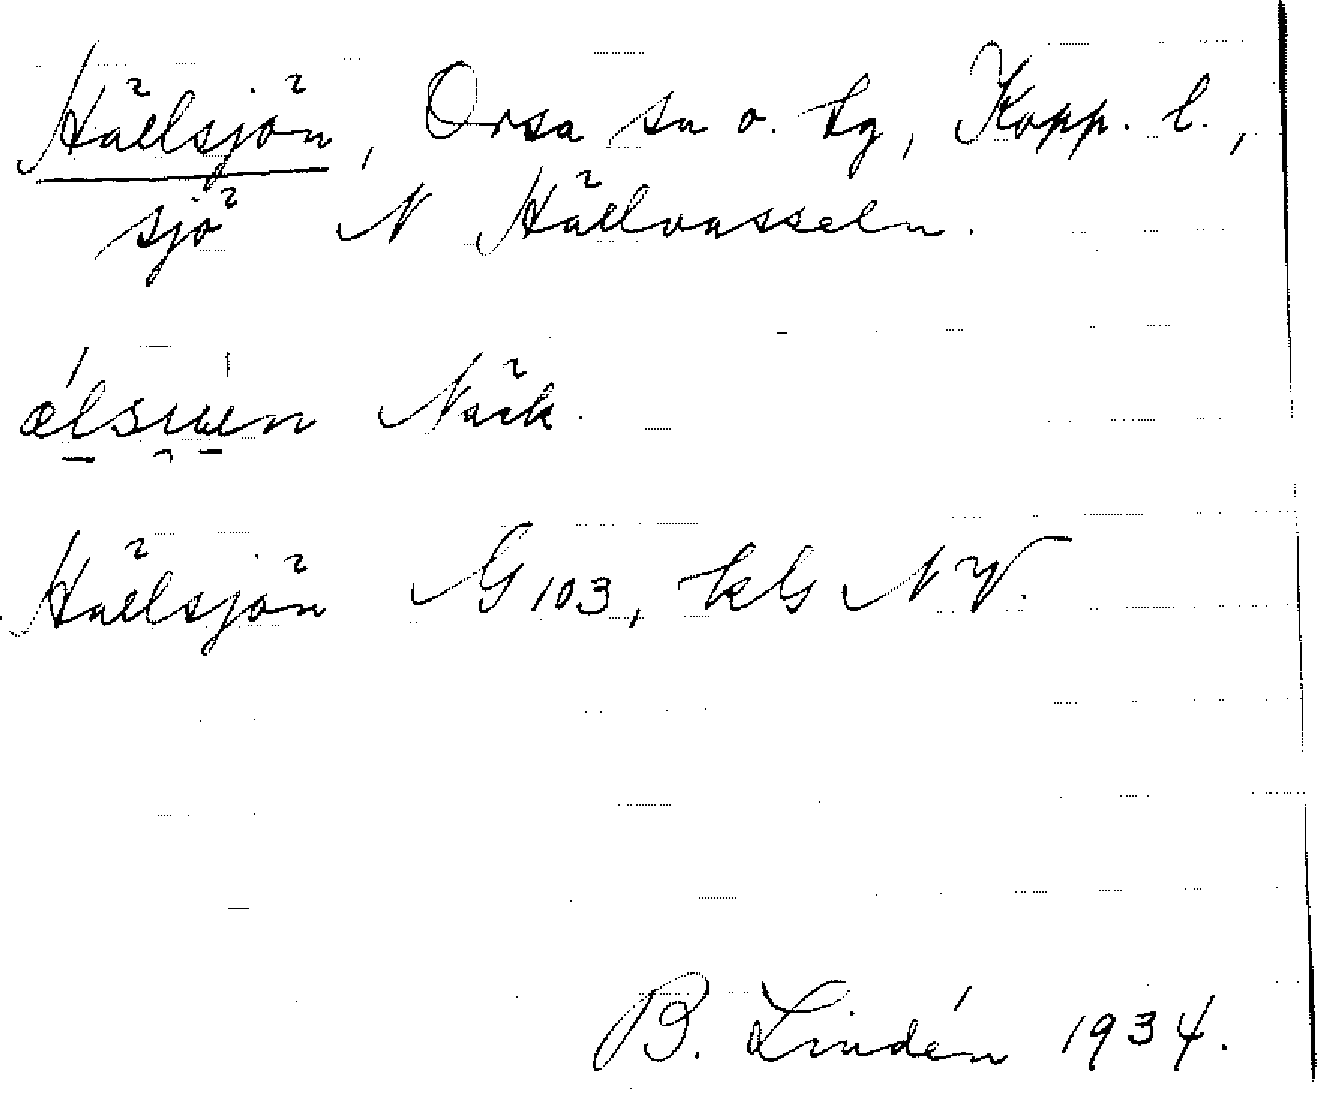 Hällsjön, Orsa sn o. tg, Kopp. l.,
sjö N Hällvasseln.
Näck.
Hällsjön G 103, kbl NV.
B. Lindén 1934.